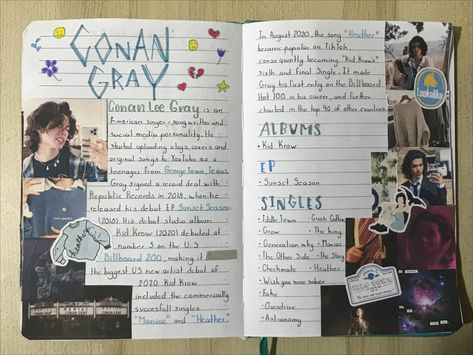 CONAN
GRAY
Conan Lee Gray is an
American singer, song writer and
social media personality. He
started uploading vlogs, covers and
original songs to YouTube as a
teenager from GeorgeTown, Texas.
Gray signed a record deal with
Republic Records in 2018, when he
released his debut EP Sunset Season
(2018). His debut studio album
Kid Krow (2020) debuted at
number 5 on the U.S
Billboard 200, making it
the biggest US new artist debut of
2020. Kid Krow
included the commercially
succesfull singles
"Maniac" and "Heather".
Heather
In August 2020, the song "Heather"
became popular on TikTok,
consequently becoming "Kid Krow's"
sixth and final single. It made
Gray his first entry on the Billboard
Hot 100 in his career, and further
charted in the top 40 of other countries.
ALBUMS
• Kid Krow
EP
• Sunset Season
SINGLES
• Idle Town • Crush Culture
• Grow • The King
• Generation why • Maniac
• The Other Side • The Story
• Checkmate • Heather
• Wish you were sober
• Fake
• Overdrive
• Astronomy
Lookalike